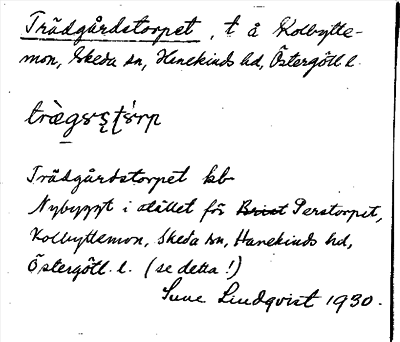 Trädgårdstorpet, t å Kolbytte-
mon, Skeda sn, Hanekinds hd, Östergötl l.
Trädgårdstorpet kb
Nybyggt i stället för Brist Perstorpet,
Kolbyttemon, Skeda sn, Hanekinds hd,
Östergötl. l. (se detta!)
Sune Lindqvist 1930.